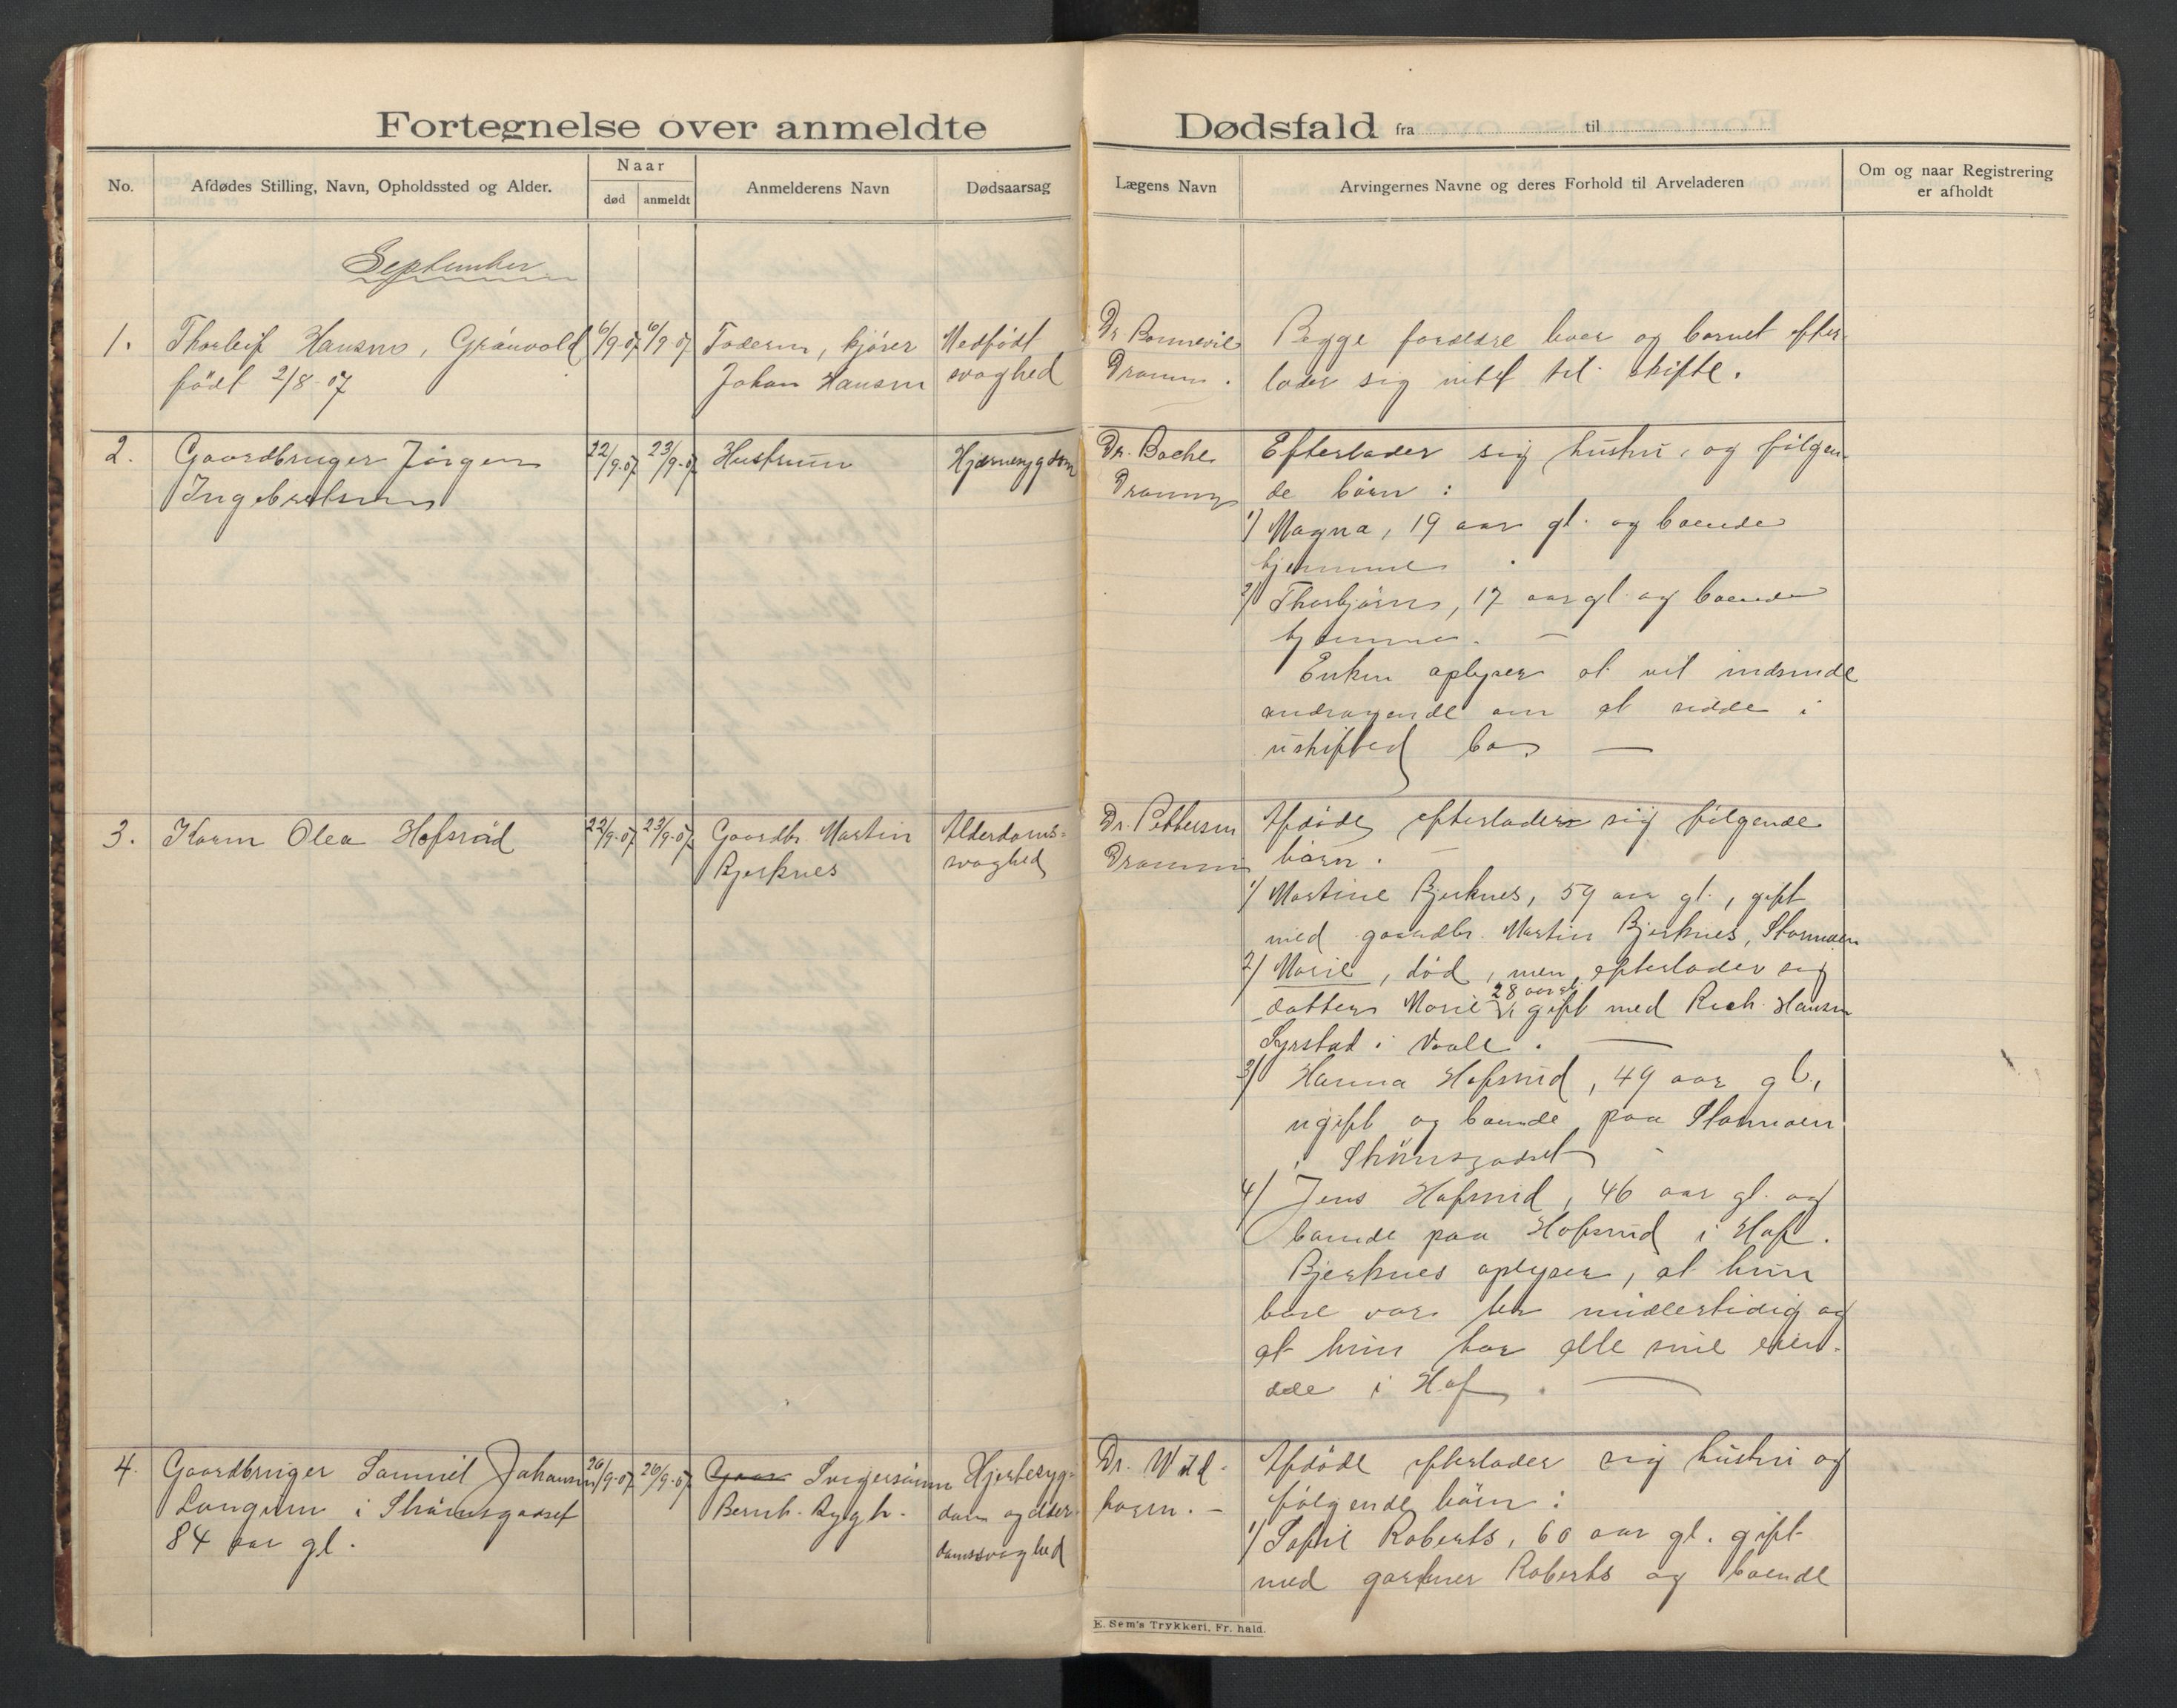 Fortegnelse over anmeldte
Dødsfald fra til
No.
Afdødes Stilling, Navn, Opholdssted og Alder.
Naar
død
anmeldt
Anmelderens Navn
Dødsaarsag
Lægens Navn
Arvingernes Navne og deres Forhold til Arveladeren
Om og naar Registrering
er afholdt
September
1.
Thorleif Hansen, Grønvold
født 2/8-07
6/9-07
6/9 07
Faderen, kjører
Johan Hansen
Medfødt
svaghed
Dr. Bonnevie
Dramm.
Begge forældre lever og barnet efter-
lader sig intet til skifte.
2.
Gaardbruger Jørgen
Ingebretsen
22/9-07
23/9-07
Hustruen
Hjernesygdom
Dr. Bache
Drammen
Efterlader sig hustru, og følgen-
de børn:
1) Magna, 19 aar gl. og boende
hjemme.
2) Thorbjørn, 17 aar gl. og boende
hjemme. —
Enken oplyser at vil indsende
andragende om at sidde i
uskiftet bo. —
3.
Karen Olea Hofsrud
22/9-07
23/9-07
Gaardbr. Martin
Bjerknes
Alderdoms-
svaghed
Dr. Pettersen
Drammen
Afdøde efterlader sig følgende
børn. —
1) Martine Bjerknes, 59 aar gl., gift
med gaardbr. Martin Bjerknes, Stormoen
2) Marie, død, men efterlader sig
28 aar gl.
datter Marie gift med Rich. Hansen
Syrstad i Vaale. —
3) Hanna Hofsrud, 49 aar gl.,
ugift og boende paa Stormoen
i Strømsgodset -
4) Jens Hofsrud, 46 aar gl. og
boende paa Hofsrud i Hof.
Bjerknes oplyser, at hun
bare var her midlertidig og
at hun har alle sine eien-
dele i Hof. —
4.
Gaardbruger Samuel Johansen
Langum i Strømsgodset
84 aar gl.
26/9-07
26/9-07
Gaar Svigersønnen
Bernh. Rygh.
Hjertesyg-
dom og alder-
domssvaghed
Dr. Wild-
hagen. -
Afdøde efterlader sig hustru og
følgende børn:
1) Sofie Roberts, 60 aar gl. gift
med gartner Roberts og boende
E. Sem's Trykkeri, Fr. hald.